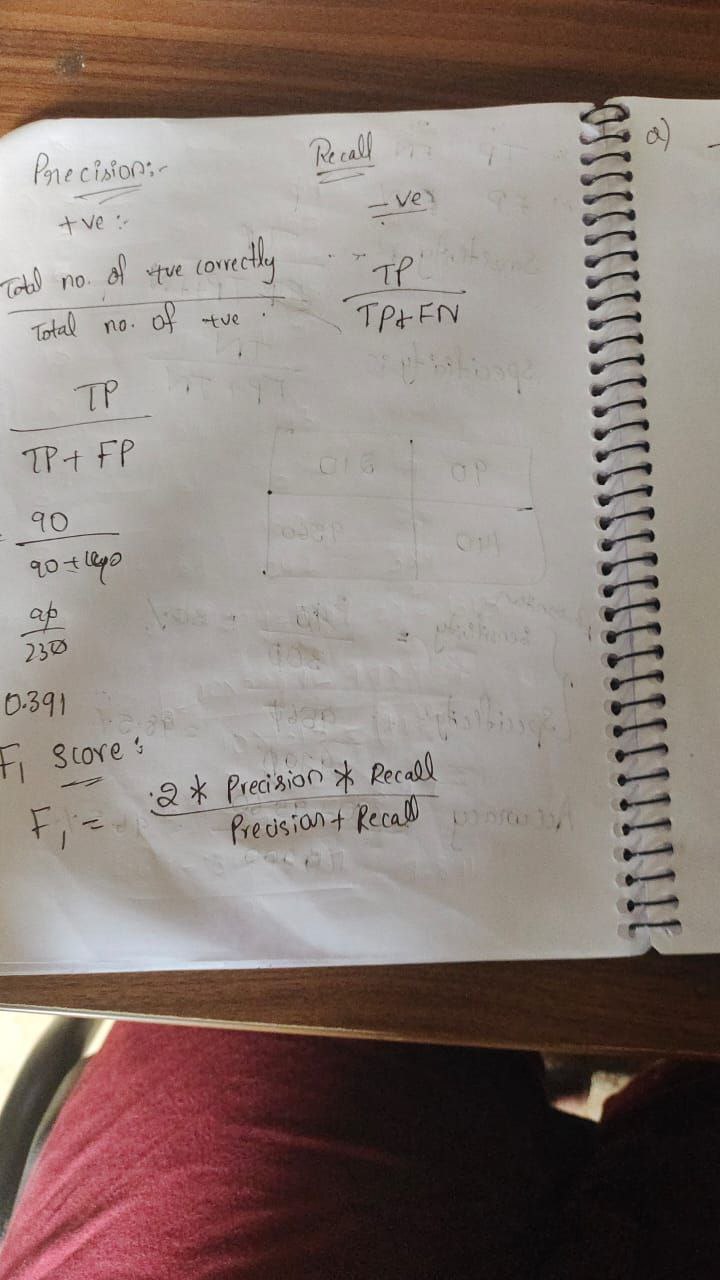 Precision:-
+ve :-
Total no. of +ve correctly
Total no. of +ve
TP
TP + FP
90
90 + 140
90
230
0.391
Recall
-ve
TP
TP + FN
F1 Score:
F1 = 2 * Precision * Recall
Precision + Recall
a)